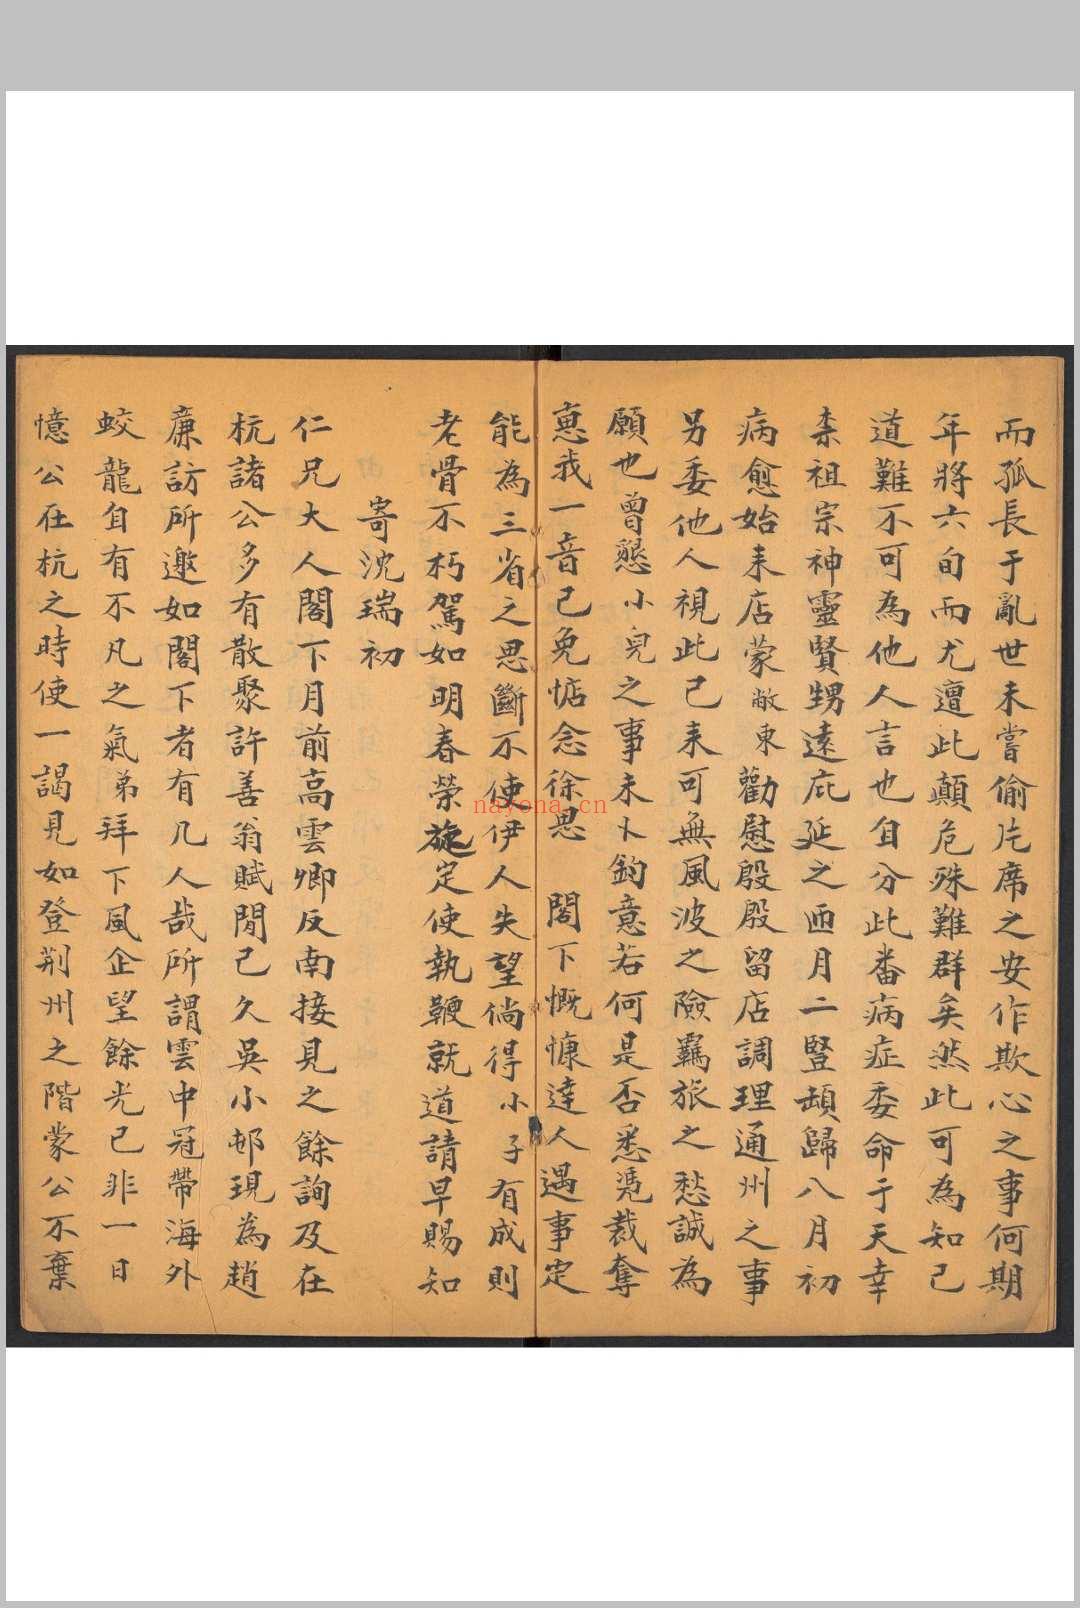 而孤長于亂世未嘗偷片席之安作欺心之事何期
年將六旬而尤遭此顛危殊難群矣然此可為知己
道難不可為他人言也自分此番病症委命于天幸
柰祖宗神靈賢甥遠庇延之迊月二豎頡歸八月初
病愈始来店蒙敝東勸慰殷殷留店調理通州之事
另委他人視此已来可無風波之險羈旅之愁誠為
願也曾懇小皃之事未卜鈞意若何是否悉凴裁奪
惠我一音已免惦念徐思 閣下慨慷達人遇事定
能為三省之思斷不使伊人失望倘得小子有成則
老骨不朽駕如明春榮旋定使執鞭就道請早賜知
寄沈瑞初
仁兄大人閣下月前高雲卿反南接見之餘詢及在
杭諸公多有散聚許善翁賦閒已久吳小邨現為趙
廉訪所邀如閣下者有几人哉所謂雲中冠帶海外
蛟龍自有不凡之氣弟拜下風企望餘光已非一日
憶公在杭之時使一謁見如登荆州之階蒙公不棄
nayona.cn